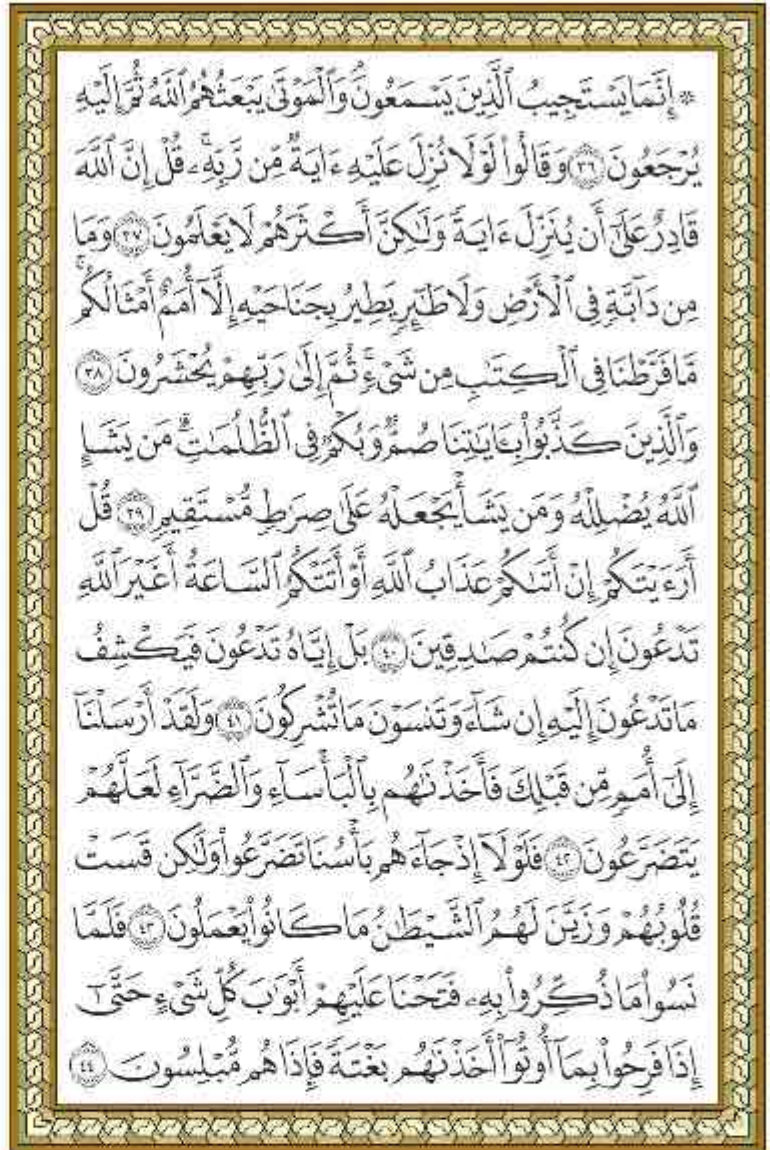 ۞ إِنَّمَا يَسْتَجِيبُ ٱلَّذِينَ يَسْمَعُونَۘ وَٱلْمَوْتَىٰ يَبْعَثُهُمُ ٱللَّهُ ثُمَّ إِلَيْهِ
يُرْجَعُونَ ٣٦ وَقَالُوا۟ لَوْلَا نُزِّلَ عَلَيْهِ ءَايَةٌ مِّن رَّبِّهِۦۚ قُلْ إِنَّ ٱللَّهَ
قَادِرٌ عَلَىٰٓ أَن يُنَزِّلَ ءَايَةً وَلَـٰكِنَّ أَكْثَرَهُمْ لَا يَعْلَمُونَ ٣٧ وَمَا
مِن دَآبَّةٍ فِى ٱلْأَرْضِ وَلَا طَـٰٓئِرٍ يَطِيرُ بِجَنَاحَيْهِ إِلَّآ أُمَمٌ أَمْثَالُكُمۚ
مَّا فَرَّطْنَا فِى ٱلْكِتَـٰبِ مِن شَىْءٍۚ ثُمَّ إِلَىٰ رَبِّهِمْ يُحْشَرُونَ ٣٨
وَٱلَّذِينَ كَذَّبُوا۟ بِـَٔايَـٰتِنَا صُمٌّ وَبُكْمٌ فِى ٱلظُّلُمَـٰتِۗ مَن يَشَإِ
ٱللَّهُ يُضْلِلْهُ وَمَن يَشَأْ يَجْعَلْهُ عَلَىٰ صِرَٰطٍ مُّسْتَقِيمٍ ٣٩ قُلْ
أَرَءَيْتَكُمْ إِنْ أَتَىٰكُمْ عَذَابُ ٱللَّهِ أَوْ أَتَتْكُمُ ٱلسَّاعَةُ أَغَيْرَ ٱللَّهِ
تَدْعُونَ إِن كُنتُمْ صَـٰدِقِينَ ٤٠ بَلْ إِيَّاهُ تَدْعُونَ فَيَكْشِفُ
مَا تَدْعُونَ إِلَيْهِ إِن شَآءَ وَتَنسَوْنَ مَا تُشْرِكُونَ ٤١ وَلَقَدْ أَرْسَلْنَآ
إِلَىٰٓ أُمَمٍ مِّن قَبْلِكَ فَأَخَذْنَـٰهُم بِٱلْبَأْسَآءِ وَٱلضَّرَّآءِ لَعَلَّهُمْ
يَتَضَرَّعُونَ ٤٢ فَلَوْلَآ إِذْ جَآءَهُم بَأْسُنَا تَضَرَّعُوا۟ وَلَـٰكِن قَسَتْ
قُلُوبُهُمْ وَزَيَّنَ لَهُمُ ٱلشَّيْطَـٰنُ مَا كَانُوا۟ يَعْمَلُونَ ٤٣ فَلَمَّا
نَسُوا۟ مَا ذُكِّرُوا۟ بِهِۦ فَتَحْنَا عَلَيْهِمْ أَبْوَٰبَ كُلِّ شَىْءٍ حَتَّىٰٓ
إِذَا فَرِحُوا۟ بِمَآ أُوتُوٓا۟ أَخَذْنَـٰهُم بَغْتَةً فَإِذَا هُم مُّبْلِسُونَ ٤٤